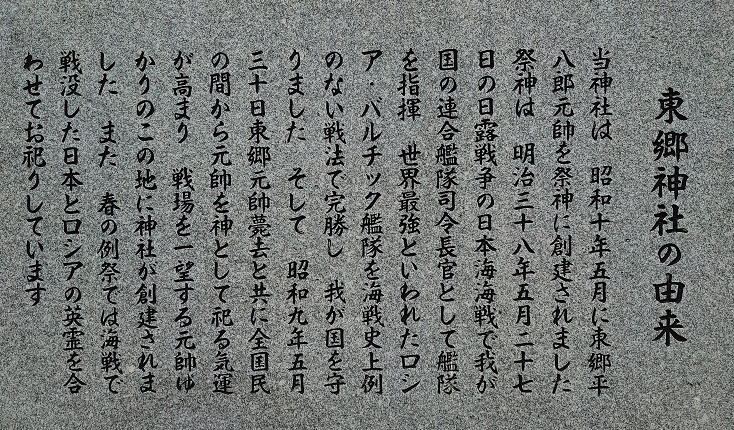 東郷神社の由来
当神社は　昭和十年五月に東郷平
八郎元帥を祭神に創建されました
祭神は　明治三十八年五月二十七
日の日露戦争の日本海海戦で我が
国の連合艦隊司令長官として艦隊
を指揮　世界最強といわれたロシ
ア・バルチック艦隊を海戦史上例
のない戦法で完勝し　我が国を守
りました　そして　昭和九年五月
三十日東郷元帥薨去と共に全国民
の間から元帥を神として祀る気運
が高まり　戦場を一望する元帥ゆ
かりのこの地に神社が創建されま
した　また　春の例祭では海戦で
戦没した日本とロシアの英霊を合
わせてお祀りしています